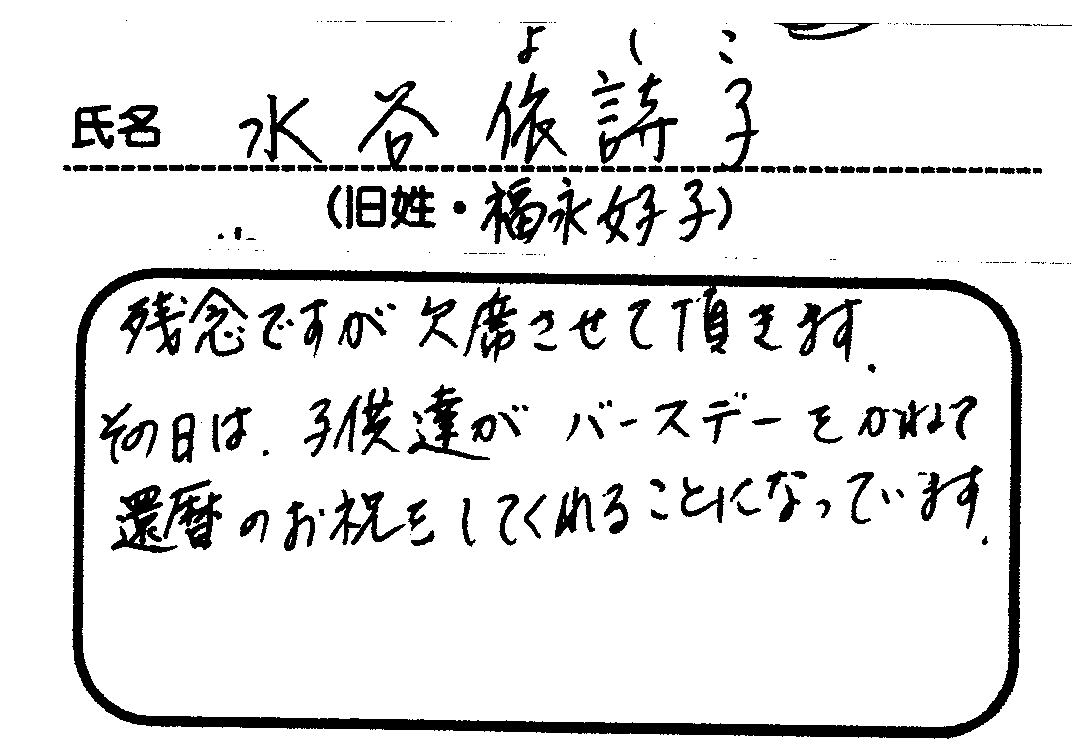 よしこ
氏名 水谷 依詩子
(旧姓・福永好子)
残念ですが欠席させて頂きます.
その日は.子供達がバースデーをかねて
還暦のお祝をしてくれることになっています.